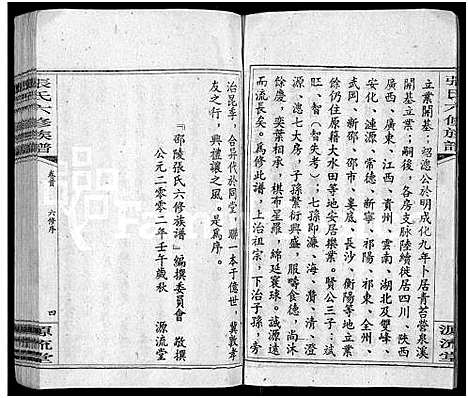 張氏六修族譜
立業開基；紹德公於明成化九年卜居青苔營泉溪
開基立業；嗣後，各房支脈陸續徙居四川、陝西
廣西、廣東、江西、貴州、雲南、湖北及雙豐、
安化、漣源、常德、新寧、祁陽、祁東、全州、
武岡、新邵、邵市、婁底、長沙、衡陽等地立業
餘仍住原籍大水田等地安居樂業。賢公三子：
旺、智（智失考）；七孫即濂、海、濳、清、
源、濨七大房，子孫繁衍興盛，服疇食德，尚沐
餘慶，奕葉相承，棋布星羅，綿延寰球。誠源遠
而流長矣。爲修此譜，上治祖宗，下治子孫，旁
源流堂
治昆季，合异代於同堂，聯一本于億世，冀敦孝
友之行，興禮讓之風。是爲序。
『邵陵張氏六修族譜』編撰委員會　敬撰
公元二零零二年壬午歲秋　源流堂
張氏六修族譜
卷首　六修序
四
源流堂